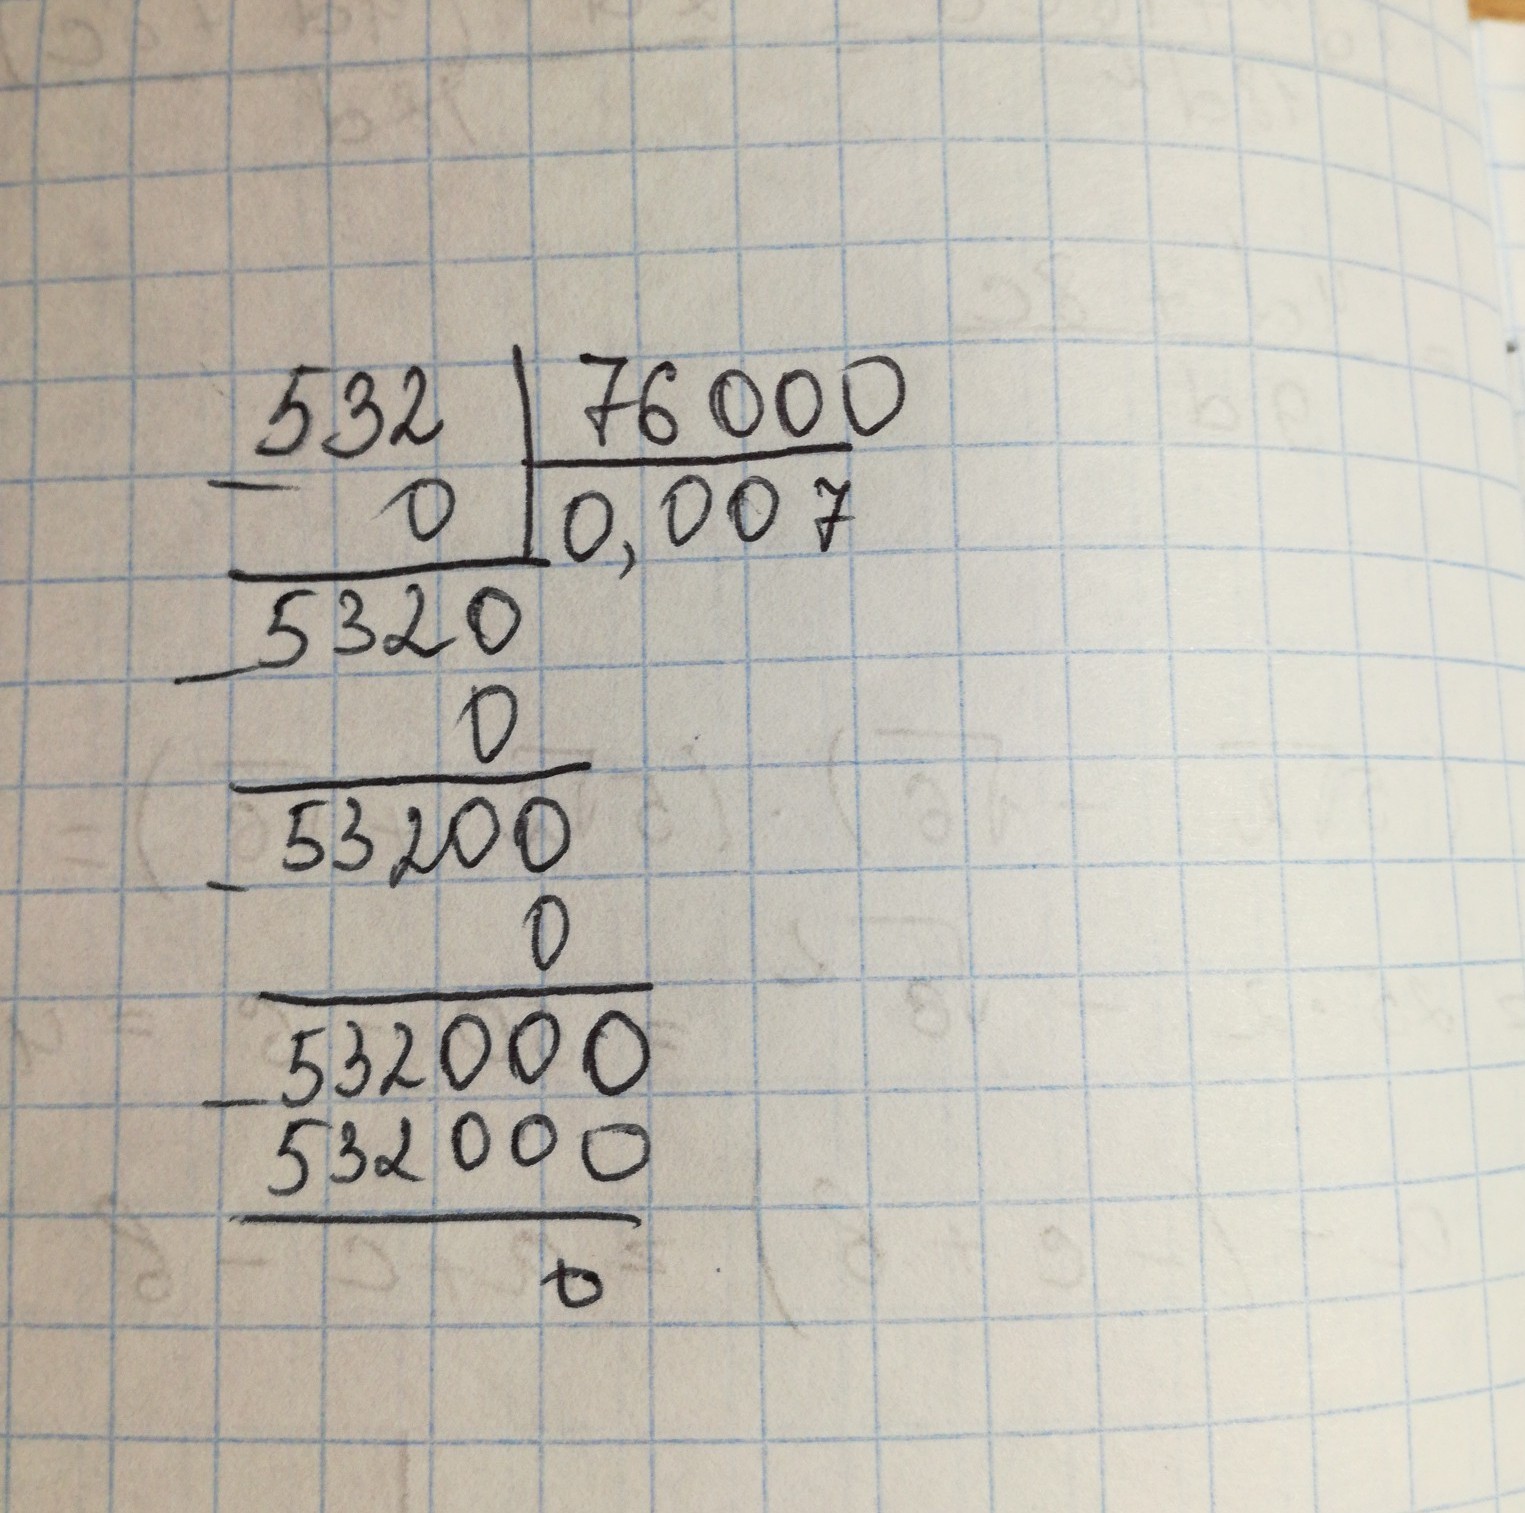 532 | 76000
− 0 | 0,007
5320
− 0
53200
− 0
532000
− 532000
0